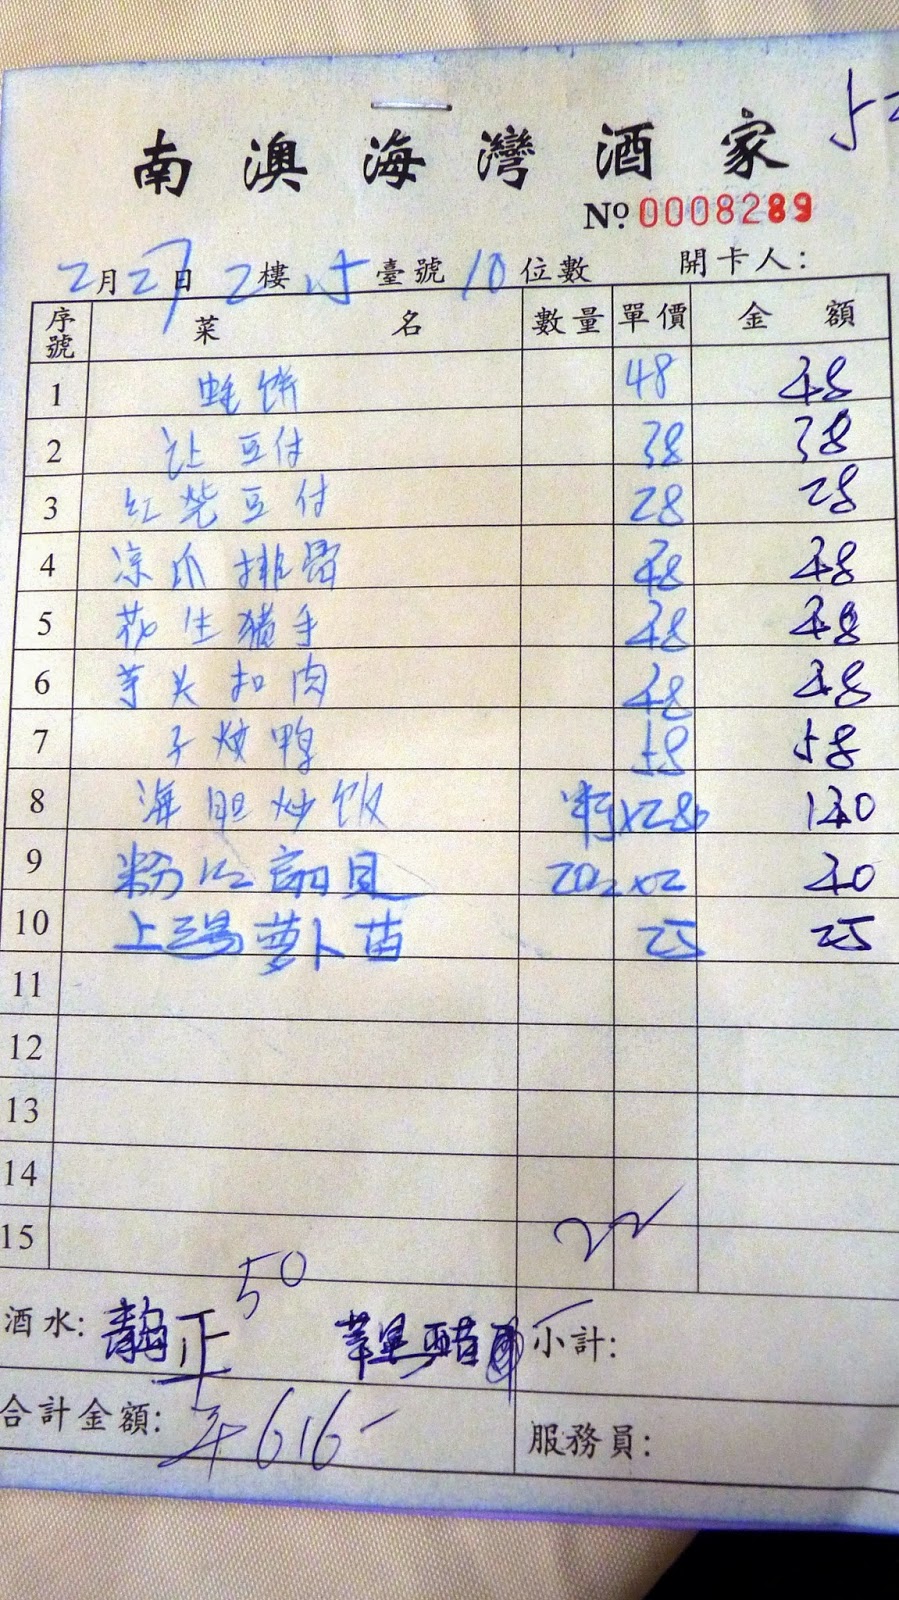 南澳海灣酒家
№ 0008289
2月27日 2樓 15臺號 10位數 開卡人:
序號 菜名 數量 單價 金額
1 蚝饼 48 48
2 让豆付 38 38
3 红烧豆付 28 28
4 凉瓜排骨 48 48
5 花生猪手 48 48
6 芋头扣肉 48 48
7 子炆鸭 58 58
8 海胆炒饭 140
9 粉丝扇贝 40
10 上汤萝卜苗 25 25
11
12
13
14
15
50
酒水: 小計:
合計金額: 616-
服務員: